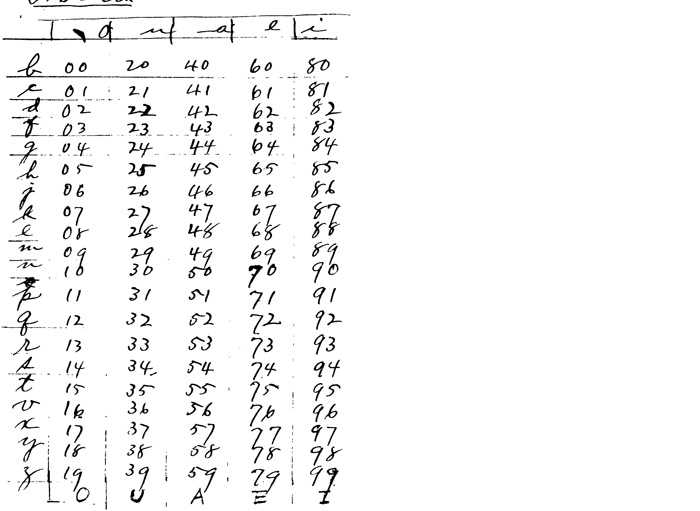 o u a e i
b 00 20 40 60 80
c 01 21 41 61 81
d 02 22 42 62 82
f 03 23 43 63 83
g 04 24 44 64 84
h 05 25 45 65 85
j 06 26 46 66 86
k 07 27 47 67 87
l 08 28 48 68 88
m 09 29 49 69 89
n 10 30 50 70 90
p 11 31 51 71 91
q 12 32 52 72 92
r 13 33 53 73 93
s 14 34 54 74 94
t 15 35 55 75 95
v 16 36 56 76 96
x 17 37 57 77 97
y 18 38 58 78 98
z 19 39 59 79 99
O U A E I